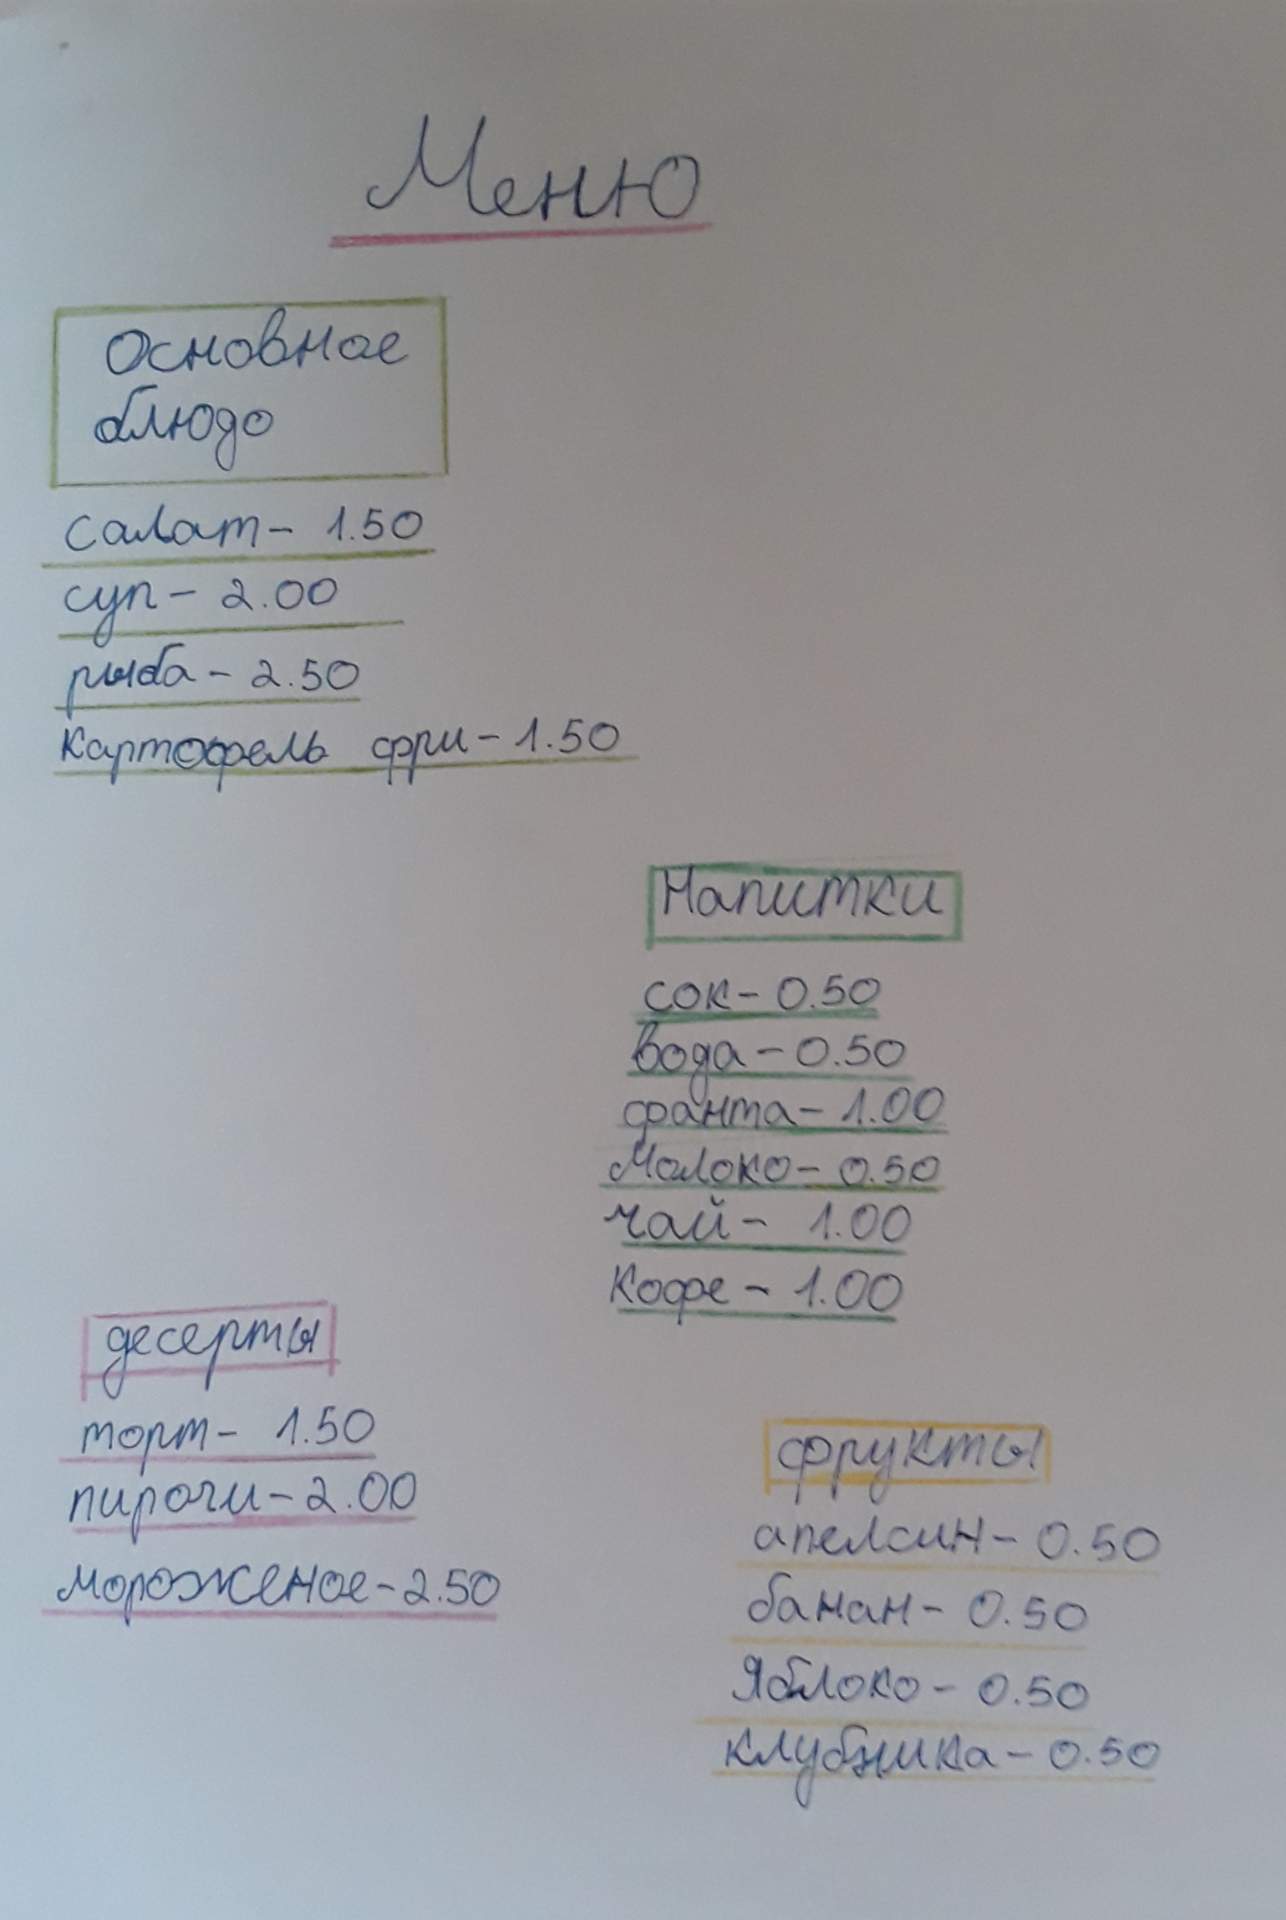 Меню
Основное
блюдо
салат - 1.50
суп - 2.00
рыба - 2.50
Картофель фри - 1.50
Напитки
сок - 0.50
вода - 0.50
фанта - 1.00
Молоко - 0.50
чай - 1.00
Кофе - 1.00
десерты
торт - 1.50
пироги - 2.00
мороженое - 2.50
фрукты
апелсин - 0.50
банан - 0.50
Яблоко - 0.50
клубника - 0.50